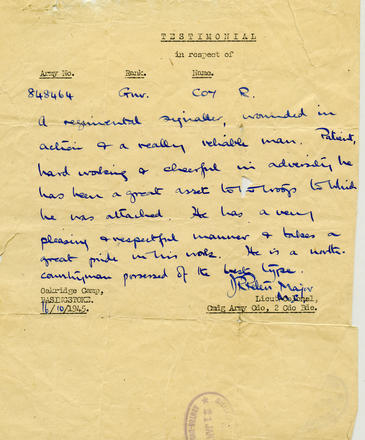 TESTIMONIAL
in respect of
Army No. Rank. Name.
848464 Gnr. COX R.
A regimental signaller, wounded in
action & a really reliable man. Patient,
hard working & cheerful in adversity he
has been a great asset to troops to which
he was attached. He has a very
pleasing & respectful manner & takes a
great pride in his work. He is a north-
countryman possessed of the best type.
Major
Oakridge Camp, Lieut-Colonel,
BASINGSTOKE. Craig Army
16/10/1945.